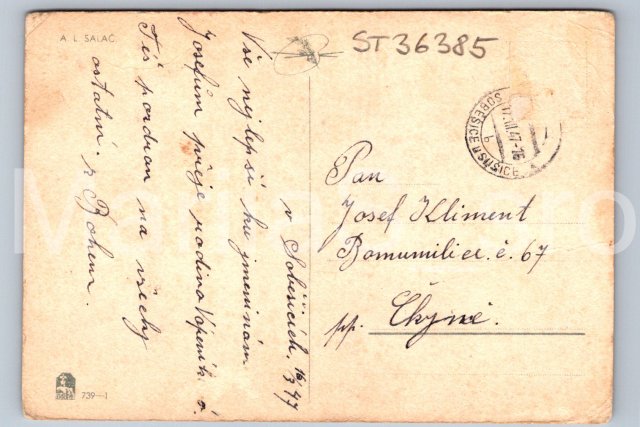 A. L. SALAČ.
ST36385
v Soběšicích, 16/3 47
Vše nejlepší ku jmeninám
Josefům přeje rodina
Též pozdrav na všechny
ostatní. z Bohem.
SOBĚŠICE U SUŠICE
17.III.47-16
b
Pan
Josef Kliment
č. 67
pp. Čkyně.
739-1